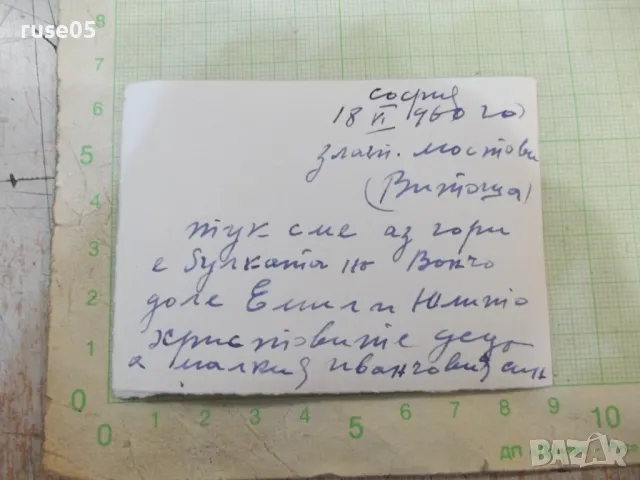 ruse05
София
18 VI 1960 год
злат. мостови
(Витоша)
тук сме аз гори
е булката на Вончо
доле Емил и Юлито
христовите деца
а малкия иванчовия син.
8
7
6
5
4
3
2
1
0
0 1 2 3 4 5 6 7 8 9 10
ДП
BAZAR